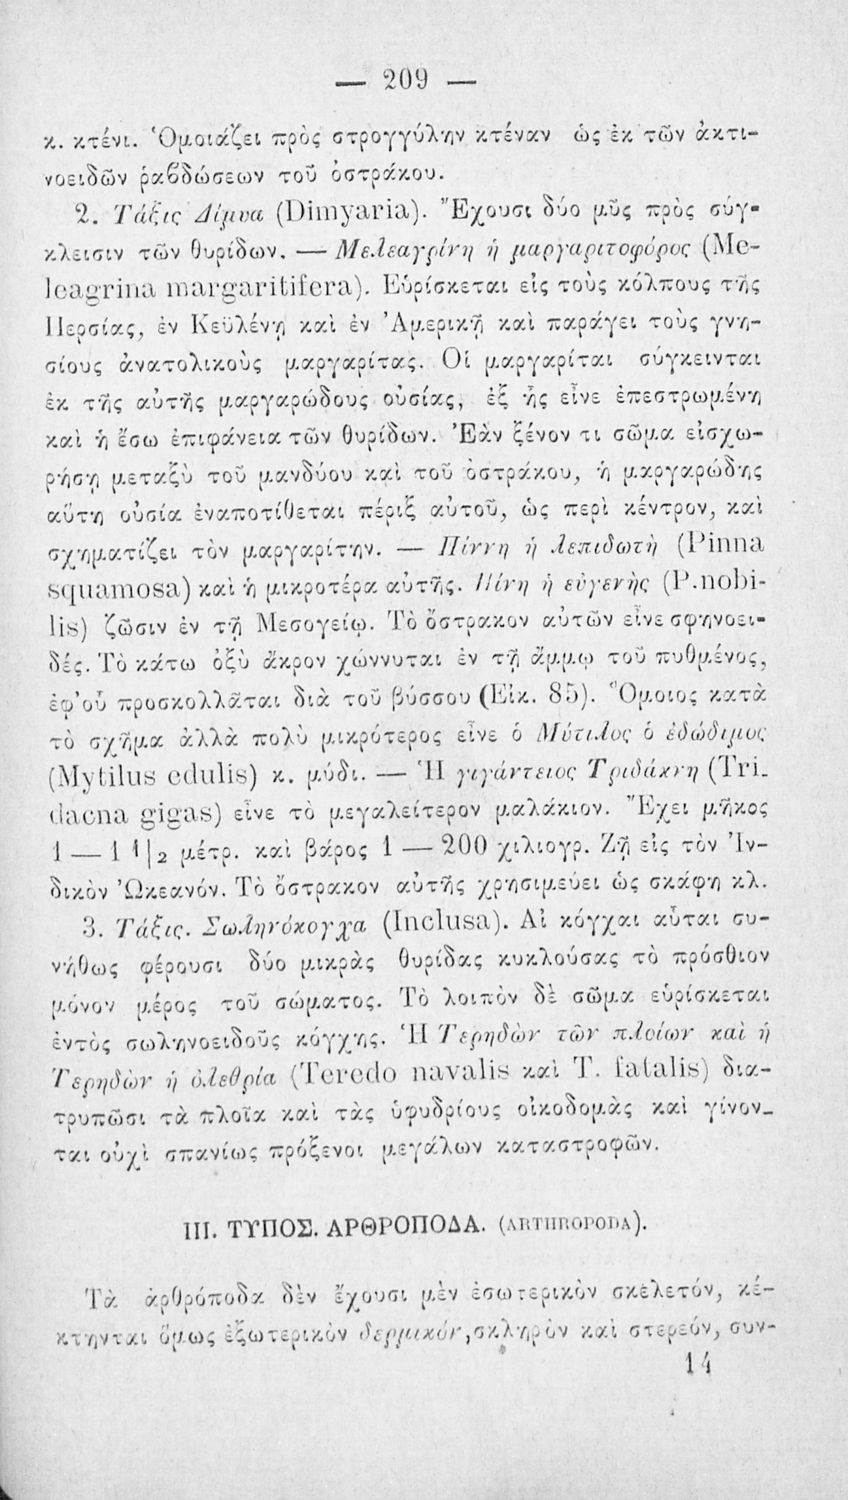 — 209 —
κ. κτένι. Ὁμοιάζει πρὸς στρογγύλην κτέναν ὡς ἐκ τῶν ἀκτι-
νοειδῶν ῥαβδώσεων τοῦ ὀστράκου.
2. Τάξις Δίμυα (Dimyaria). Ἔχουσι δύο μῦς πρὸς σύγ-
κλεισιν τῶν θυρίδων. — Μελεαγρίνη ἡ μαργαριτοφόρος (Me-
leagrina margaritifera). Εὑρίσκεται εἰς τοὺς κόλπους τῆς
Περσίας, ἐν Κεϋλένῃ καὶ ἐν Ἀμερικῇ καὶ παράγει τοὺς γνη-
σίους ἀνατολικοὺς μαργαρίτας. Οἱ μαργαρίται σύγκεινται
ἐκ τῆς αὐτῆς μαργαρώδους οὐσίας, ἐξ ἧς εἶνε ἐπεστρωμένη
καὶ ἡ ἔσω ἐπιφάνεια τῶν θυρίδων. Ἐὰν ξένον τι σῶμα εἰσχω-
ρήσῃ μεταξὺ τοῦ μανδύου καὶ τοῦ ὀστράκου, ἡ μαργαρώδης
αὕτη οὐσία ἐναποτίθεται πέριξ αὐτοῦ, ὡς περὶ κέντρον, καὶ
σχηματίζει τὸν μαργαρίτην. — Πίννη ἡ λεπιδωτὴ (Pinna
squamosa) καὶ ἡ μικροτέρα αὐτῆς. Πίνη ἡ εὐγενὴς (P.nobi-
lis) ζῶσιν ἐν τῇ Μεσογείῳ. Τὸ ὄστρακον αὐτῶν εἶνε σφηνοει-
δές. Τὸ κάτω ὀξὺ ἄκρον χώννυται ἐν τῇ ἄμμῳ τοῦ πυθμένος,
ἐφ'οὗ προσκολλᾶται διὰ τοῦ βύσσου (Εἰκ. 85). Ὅμοιος κατὰ
τὸ σχῆμα ἀλλὰ πολὺ μικρότερος εἶνε ὁ Μύτιλος ὁ ἐδώδιμος
(Mytilus edulis) κ. μύδι. — Ἡ γιγάντειος Τριδάκνη (Tri-
dacna gigas) εἶνε τὸ μεγαλείτερον μαλάκιον. Ἔχει μῆκος
1 — 1 1|2 μέτρ. καὶ βάρος 1 — 200 χιλιογρ. Ζῇ εἰς τὸν Ἰν-
δικὸν Ὠκεανόν. Τὸ ὄστρακον αὐτῆς χρησιμεύει ὡς σκάφη κλ.
3. Τάξις. Σωληνόκογχα (Inclusa). Αἱ κόγχαι αὗται συ-
νήθως φέρουσι δύο μικρὰς θυρίδας κυκλούσας τὸ πρόσθιον
μόνον μέρος τοῦ σώματος. Τὸ λοιπὸν δὲ σῶμα εὑρίσκεται
ἐντὸς σωληνοειδοῦς κόγχης. Ἡ Τερηδὼν τῶν πλοίων καὶ ἡ
Τερηδὼν ἡ ὀλεθρία (Teredo navalis καὶ T. fatalis) δια-
τρυπῶσι τὰ πλοῖα καὶ τὰς ὑφυδρίους οἰκοδομὰς καὶ γίνον-
ται οὐχὶ σπανίως πρόξενοι μεγάλων καταστροφῶν.
III. ΤΥΠΟΣ. ΑΡΘΡΟΠΟΔΑ. (ARTHROPODA).
Τὰ ἀρθρόποδα δὲν ἔχουσι μὲν ἐσωτερικὸν σκελετόν, κέ-
κτηνται ὅμως ἐξωτερικὸν δερμικόν, σκληρὸν καὶ στερεόν, συν-
14